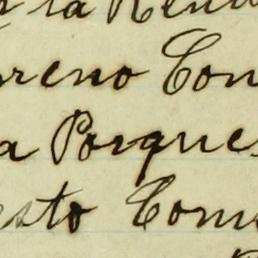 la Rem
oreno Con
a Porque
esto Com